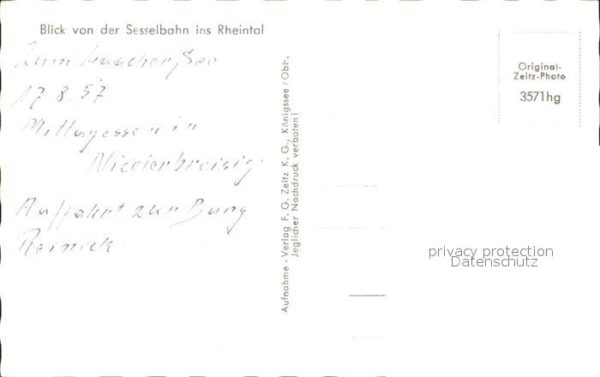 Blick von der Sesselbahn ins Rheintal
Zum Laacher See
17 8. 57
Mittagessen in
Niederbreisig
Auffahrt zur Burg
Reineck
Aufnahme - Verlag F. G. Zeitz K. G., Königssee / Obb.
Jeglicher Nachdruck verboten!
Original-
Zeitz-Photo
3571hg
privacy protection
Datenschutz